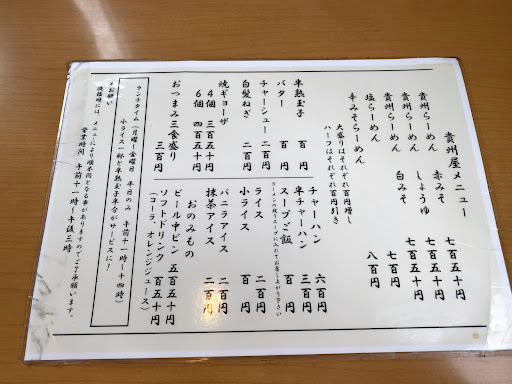 貴州屋メニュー
貴州らーめん 赤みそ 七百五十円
貴州らーめん しょうゆ 七百五十円
貴州らーめん 白みそ 七百五十円
塩らーめん 七百円
辛みそらーめん 八百円
大盛りはそれぞれ百円増し
ハーフはそれぞれ百円引き
半熟玉子 百円
バター 百円
チャーシュー 二百円
白髪ねぎ 二百円
焼ギョーザ
4個 三百五十円
6個 四百五十円
おつまみ三食盛り 三百円
チャーハン 六百円
半チャーハン 三百円
スープご飯 百円
ラーメンの残りスープに入れてお召し上がり下さい
ライス 二百円
小ライス 百円
バニラアイス 二百円
抹茶アイス 二百円
おのみもの
ビール中ビン 五百五十円
ソフトドリンク 百五十円
(コーラ、オレンジジュース)
ランチタイム(月曜〜金曜日 平日のみ 午前十一時〜十四時)
小ライス一杯と半熟玉子半分がサービスに!
※お願い
混雑時には、メニューにより順不同となる事がありますのでご了承願います。
営業時間 午前十一時〜午後三時